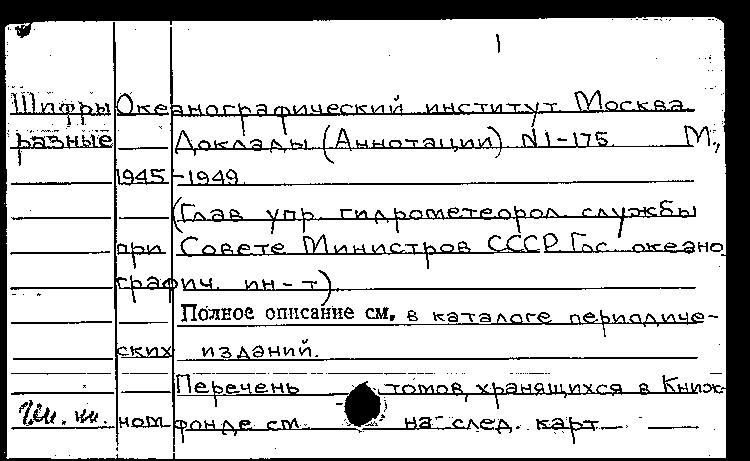 1
Шифры Океанографический институт Москва
разные Доклады (Аннотации) №1-175 М.,
1945-1949
(Глав упр. гидрометеорол. службы
при Совете Министров СССР. Гос. океано
графич. ин-т)
Полное описание см. в каталоге периодиче-
ских изданий.
Перечень томов, хранящихся в Книж-
ном фонде см. на след. карт